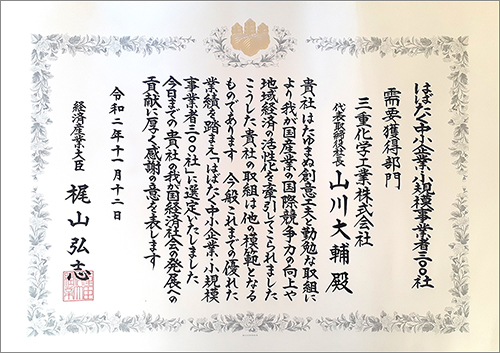 はばたく中小企業・小規模事業者三〇〇社
需要獲得部門
三重化学工業株式会社
代表取締役社長 山川大輔 殿
貴社はたゆまぬ創意工夫と勤勉な取組に
より我が国産業の国際競争力の向上や
地域経済の活性化を牽引してこられました
こうした貴社の取組は他の模範となる
ものであります 今般これまでの優れた
業績を踏まえ「はばたく中小企業・小規模
事業者三〇〇社」に選定いたしました
今日までの貴社の我が国経済社会の発展への
貢献に厚く感謝の意を表します
令和二年十一月十二日
経済産業大臣 梶山弘志